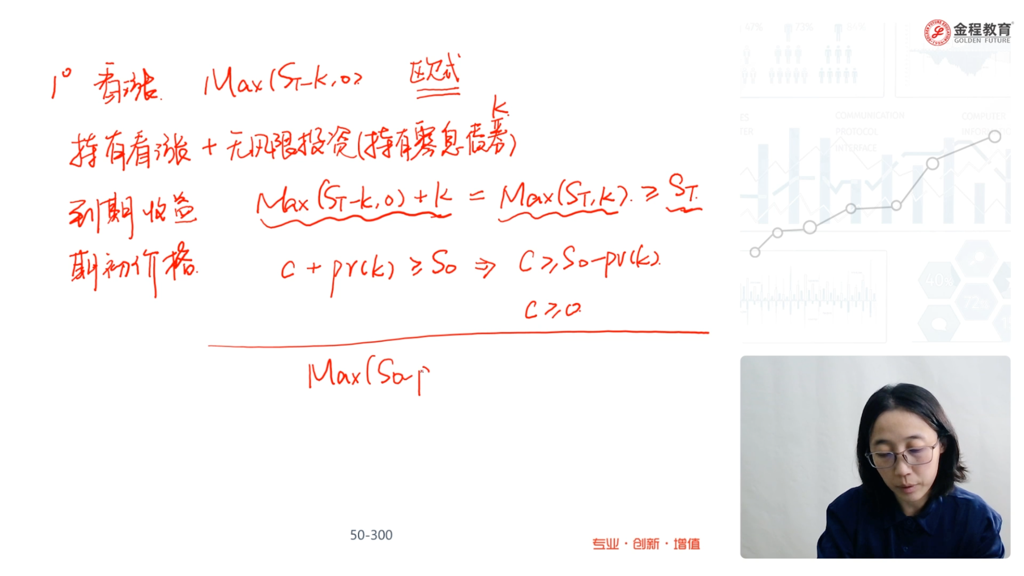 金程教育
GOLDEN FUTURE
1° 看涨 Max(ST-K,0) 欧式
K
持有看涨+无风险投资(持有零息债券)
到期收益 Max(ST-K,0)+K = Max(ST,K) ≥ ST
期初价格 C+pv(k) ≥ S0 ⇒ C ≥ S0-pv(k)
C ≥ 0
Max(S0-p
50-300
专业·创新·增值
COMMUNICATION
PROTOCOL
INTERFACE